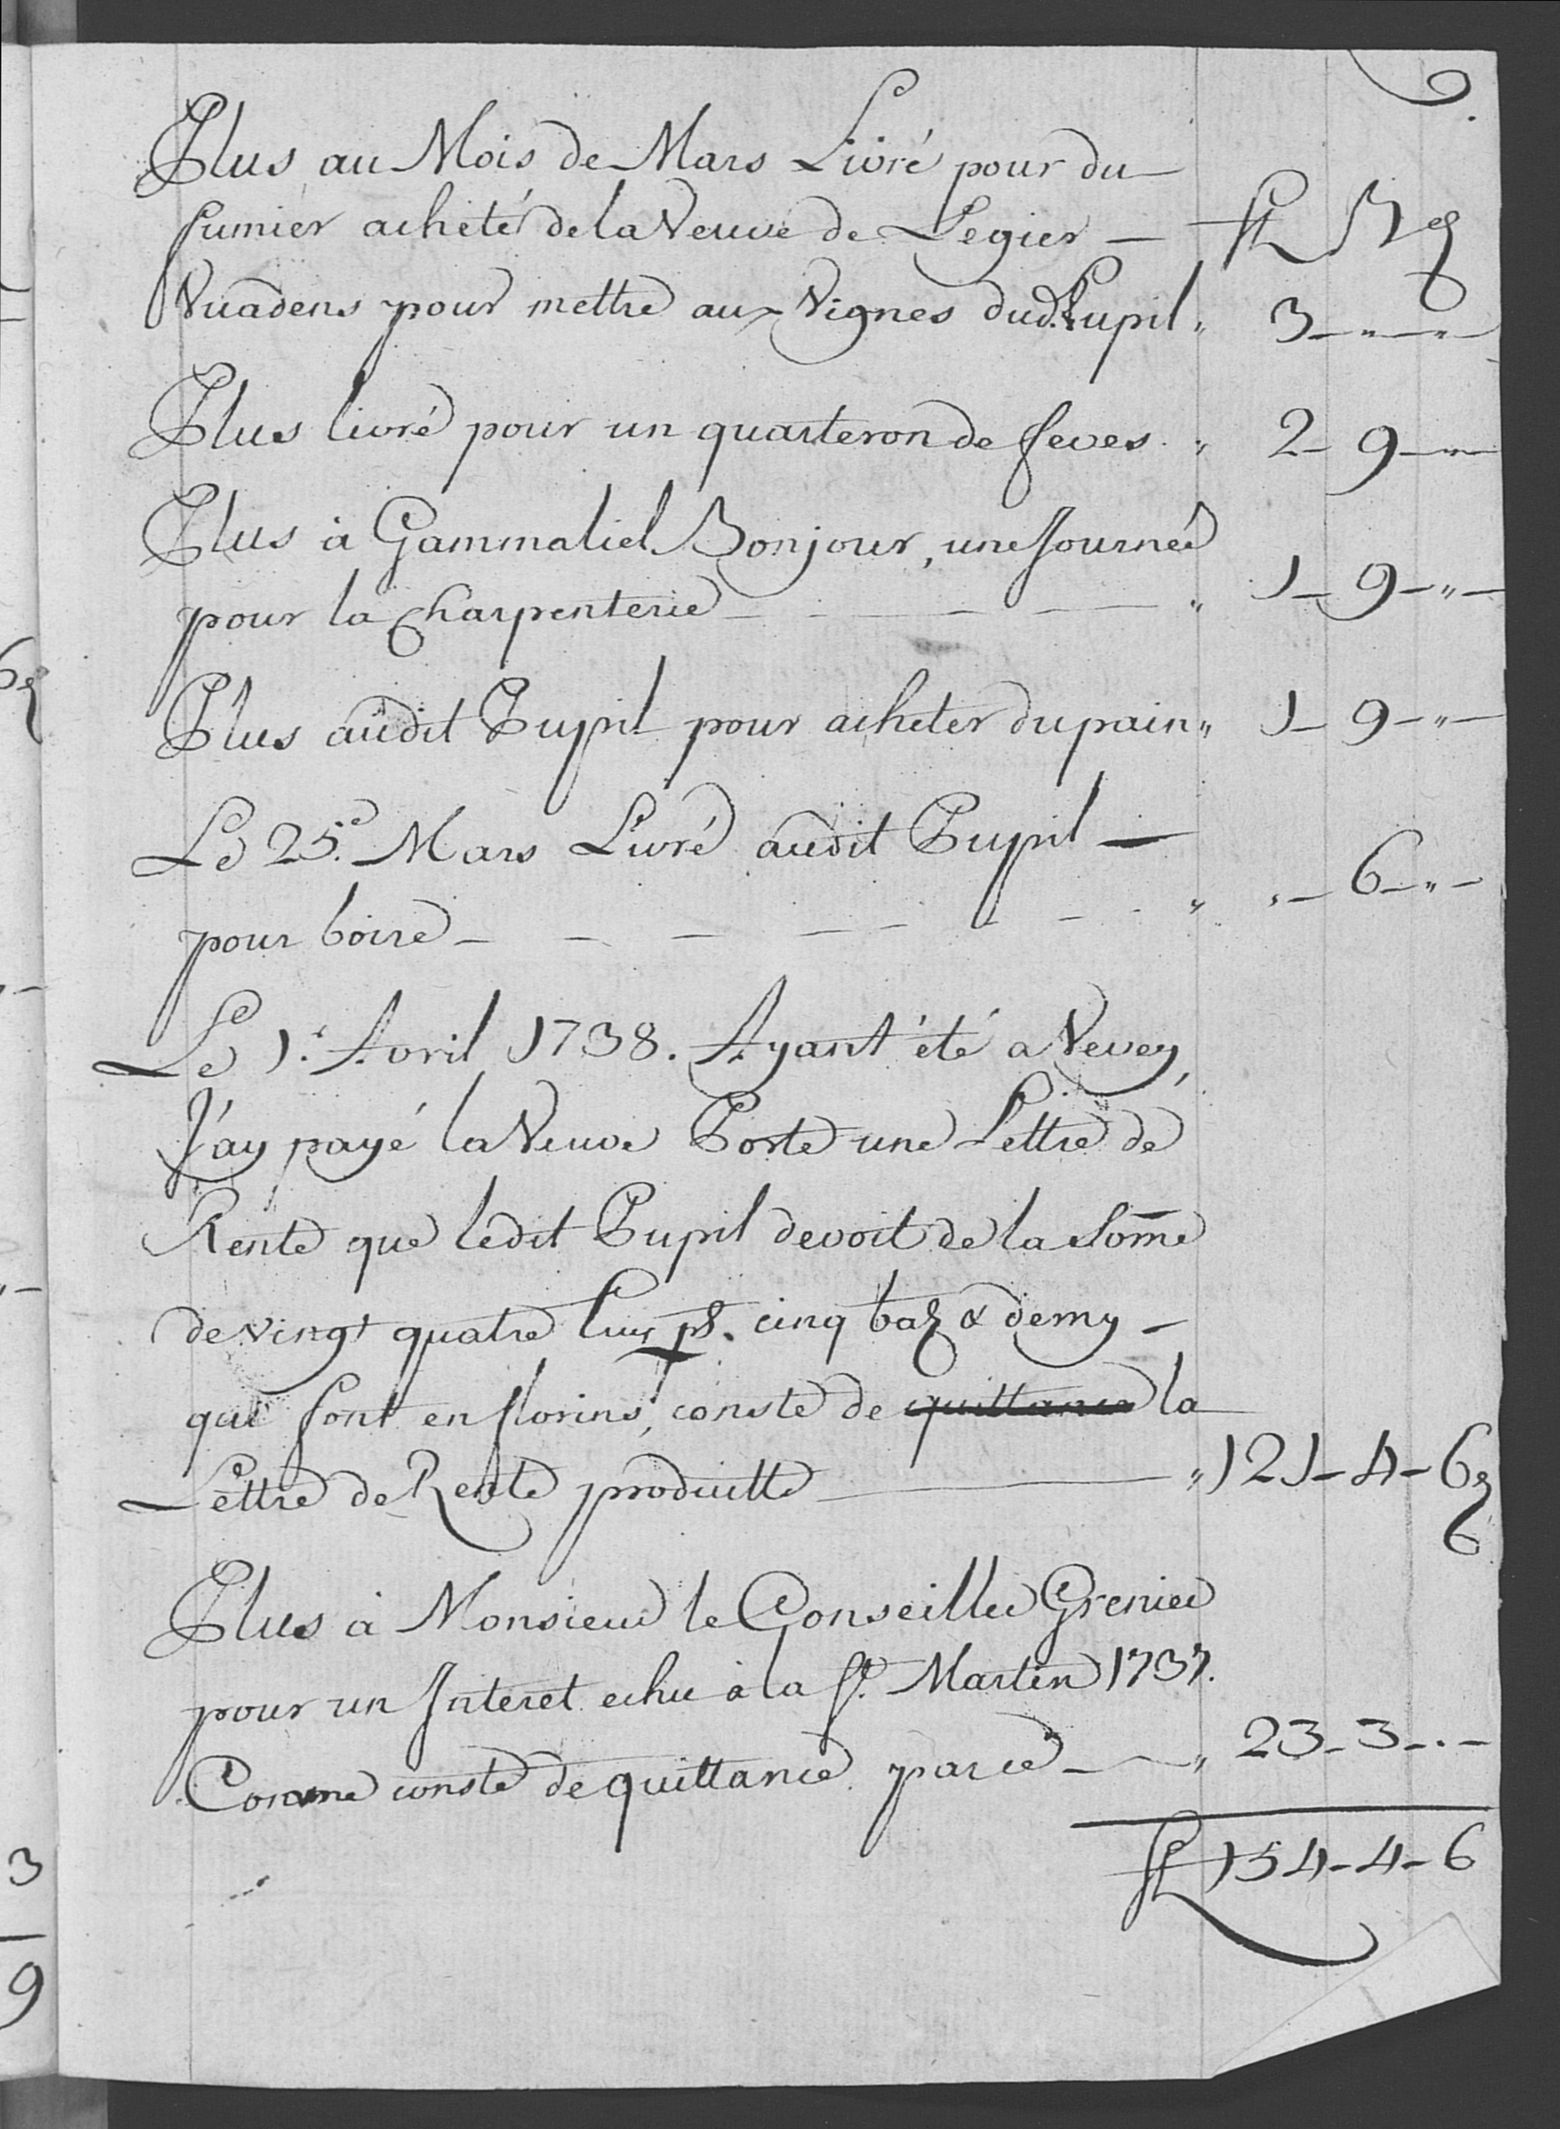 9.
Plus au Mois de Mars Livré pour du
fumier acheté de la Veuve de Legier — fl ß ₰
Vuadens pour mettre aux Vignes dud. Pupil " 3 - " - "
Plus livré pour un quarteron de feves. " 2 - 9 - "
Plus à Gammaliel Bonjour, une Journeé
pour la Charpenterie " 1 - 9 - " -
Plus audit Pupil pour acheter du pain " 1 - 9 - " -
Le 25.e Mars Livré audit Pupil —
pour boire " " - 6 - " -
Le 1.r Avril 1738. Ayant été a Vevey,
J'ay payé la Veuve Porte une Lettre de
Rente que ledit Pupil devoit de la Some
de vingt quatre cinq baz & demy —
qui font en florins, conste de quittance la
Lettre de Rente produitte " 121 - 4 - 6
Plus à Monsieur le Conseiller Grenier
pour un Interet echu à la St. Martin 1737.
Comme conste de quittance par ce " 23 - 3 - . -
fl 154 - 4 - 6
3
9